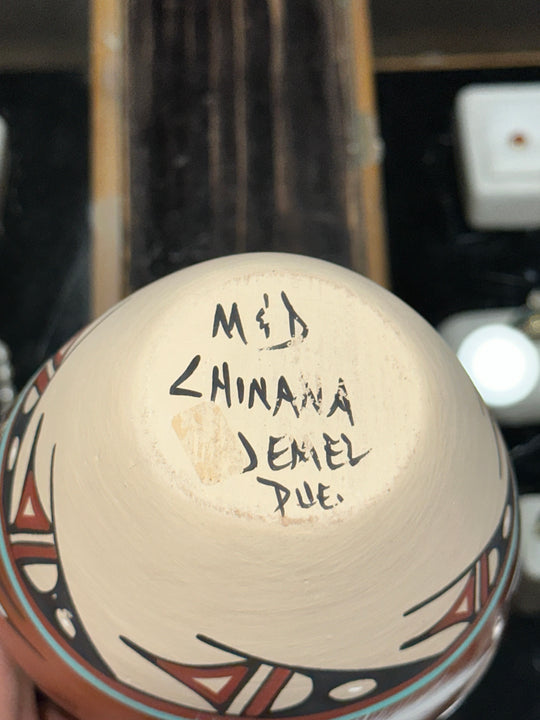 M & D
CHINANA
JEMEZ
PUE.